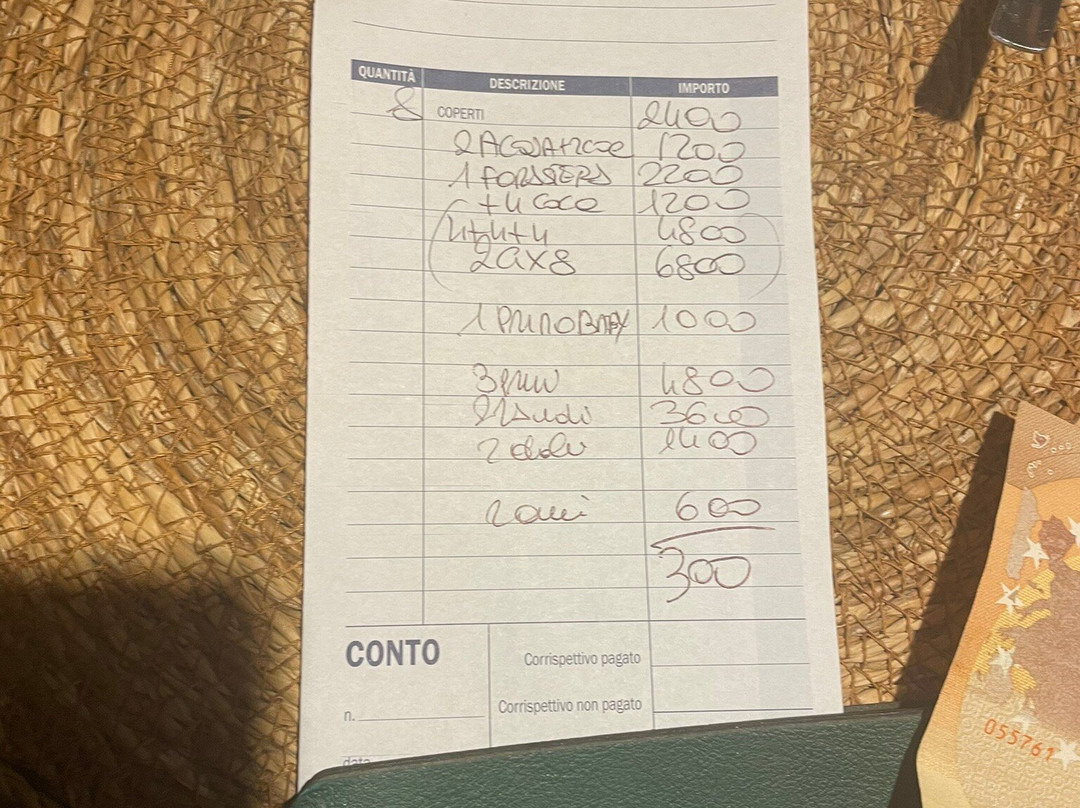 QUANTITÀ DESCRIZIONE IMPORTO
8 COPERTI 2400
2 ACQUA+2COCE 1200
1 FORSTERS 2200
+4 COCE 1200
4+4+4 4800
2AX8 6800
1 PRIMOBABY 1000
3 primi 4800
2 secondi 3600
2 dolci 1400
600
300
CONTO
Corrispettivo pagato
n.
Corrispettivo non pagato
data
055761